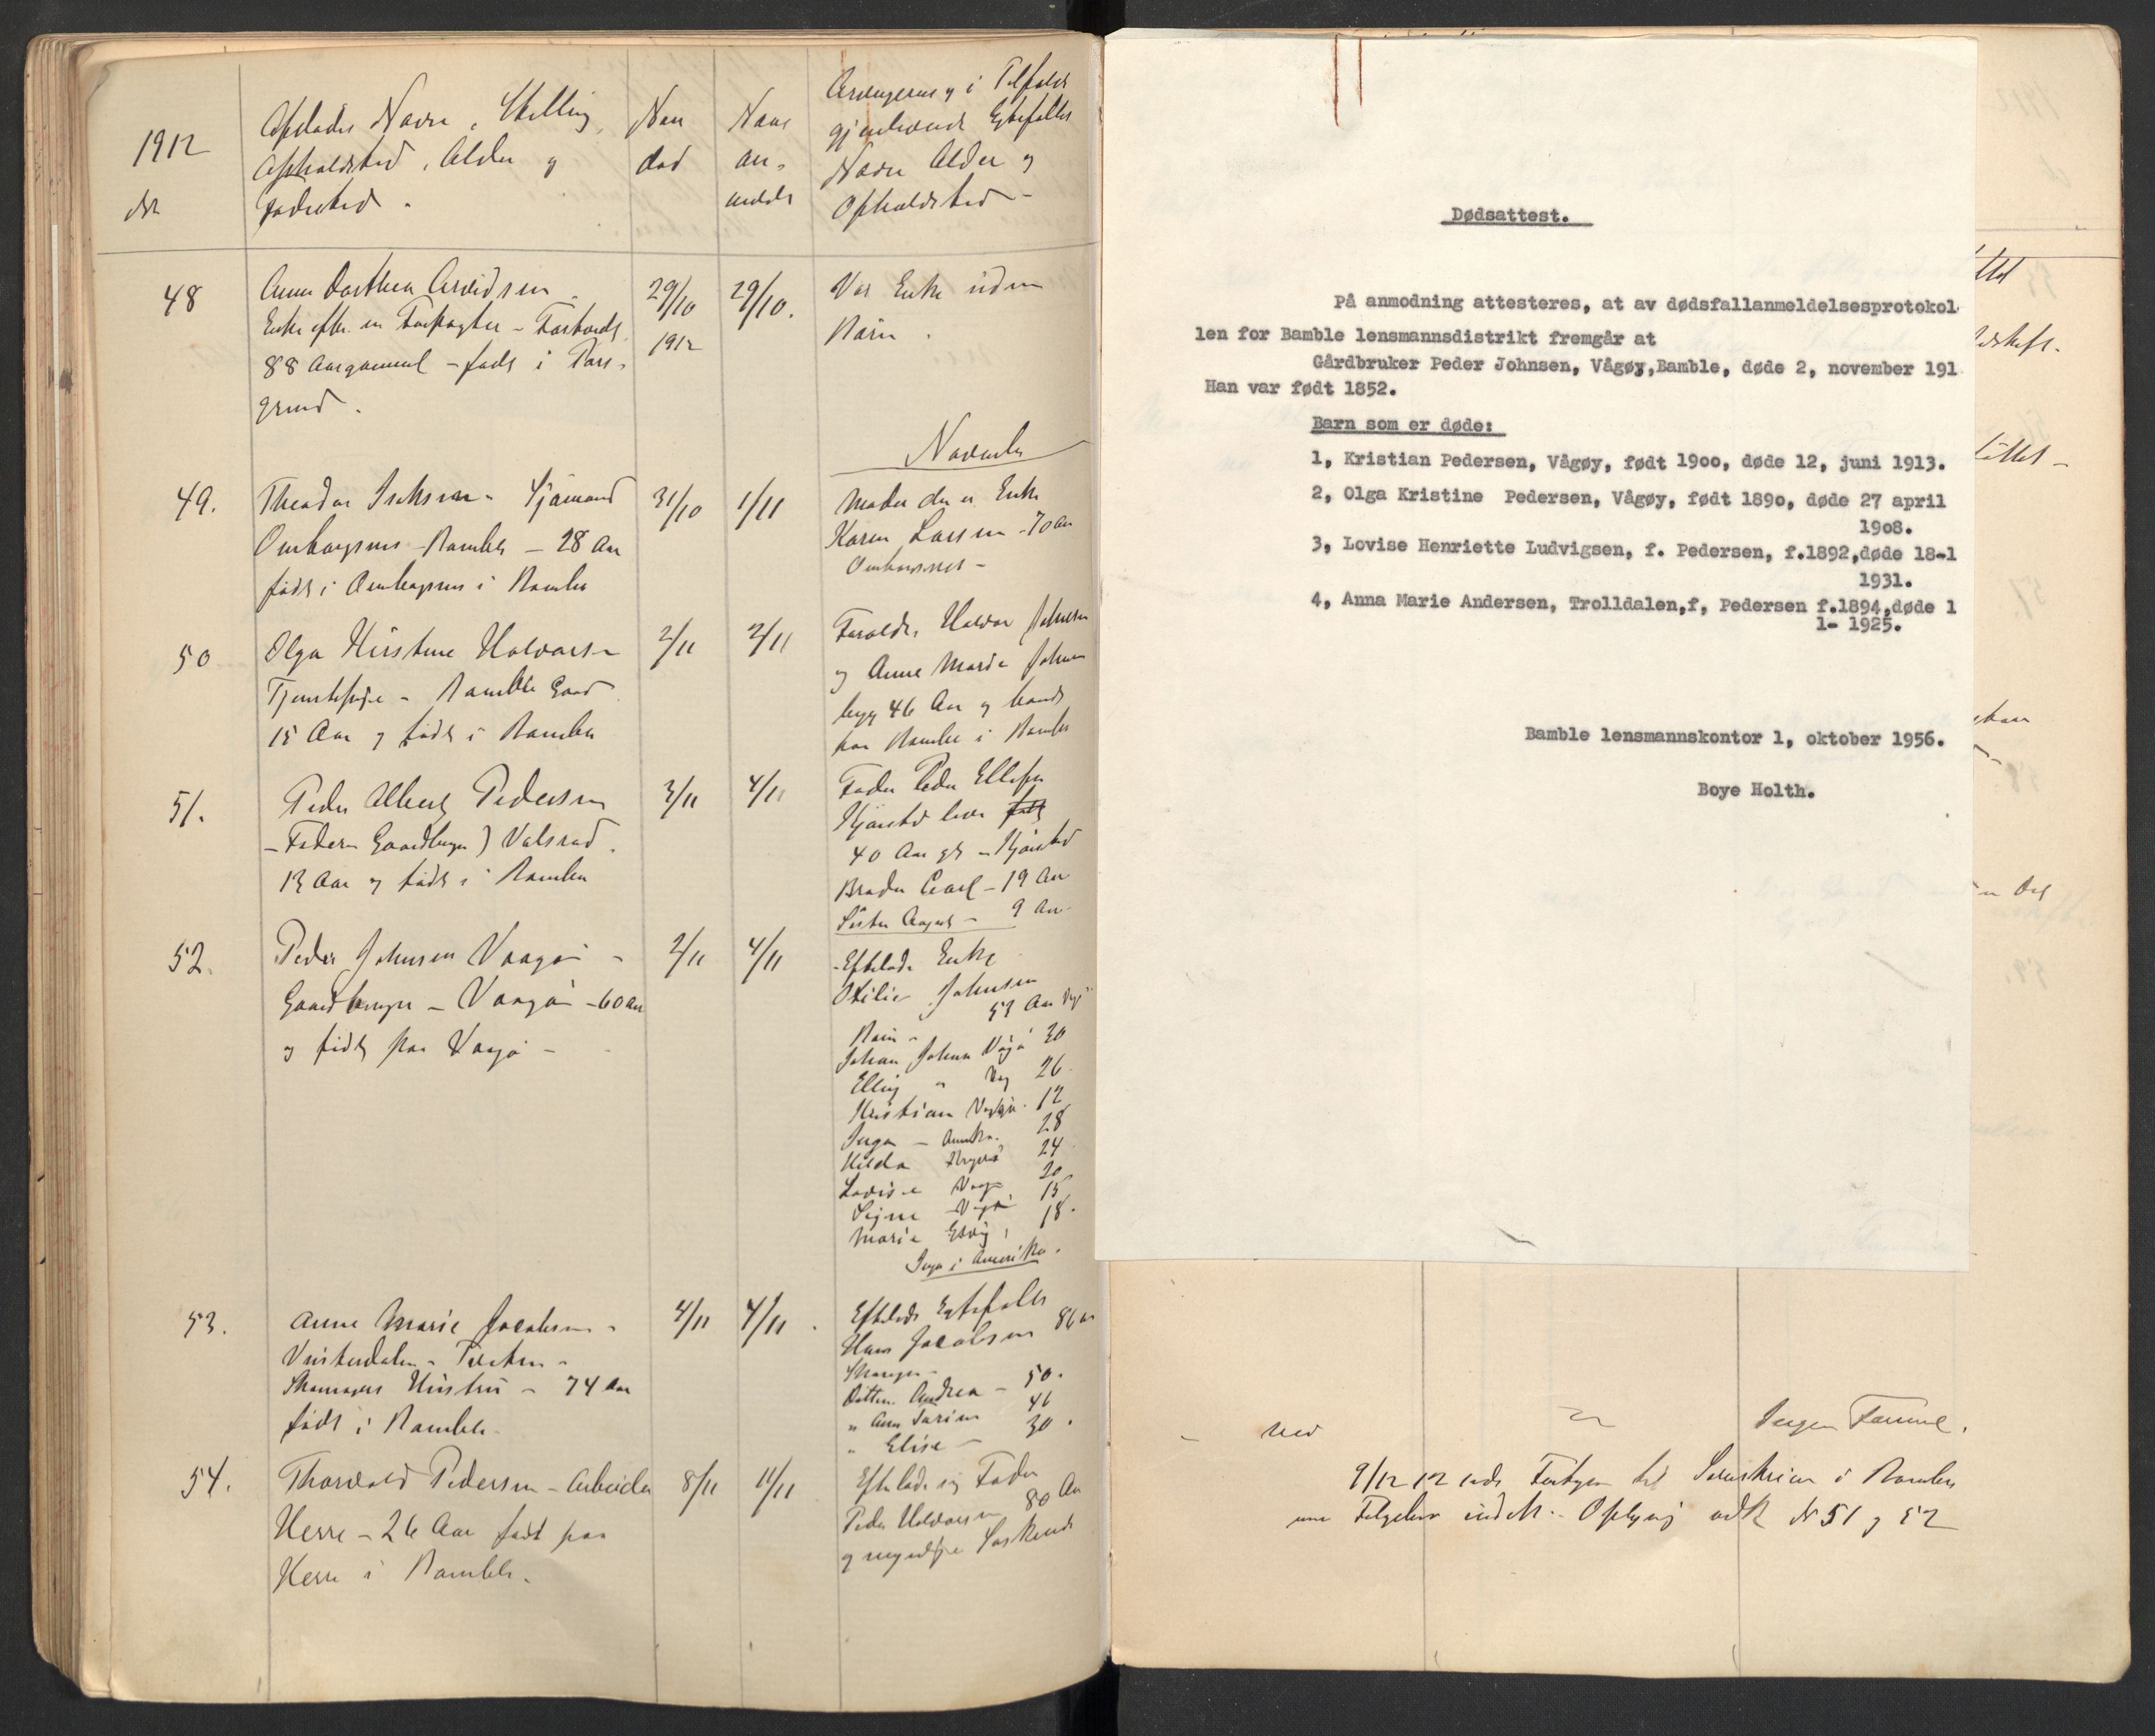 1912
Afdødes Navn, Stilling,
Opholdssted, Alder og
Fødested.
Naar
død
Naar
an-
meldt
Arvingernes og i Tilfælde
gjenlevende Egtefælles
Navn Alder og
Opholdsted -
48
Anne Dorthea Arvidsen
Enke efter en Forpagter -
88 Aar gammel - født i Pors-
grund.
29/10
1912
29/10.
Var Enke uden
Børn.
November
49.
Theodor Isaksen - Sjømand
- Bamble - 28 Aar
født i i Bamble
31/10
1/11
Moder der er Enke
Karen Larsen - 70 Aar
50
Olga Kirstine Halvorsen
Tjenestepige - Bamble Gaard
15 Aar og født i Bamble
2/11
2/11
Forældre Halvor Johnsen
og Anne Marie Johnsen
begge 46 Aar og boende
paa Bamble i Bamble
51.
Peder Albert Pedersen
- Faderen Gaardbruger) Valsrød.
13 Aar og født i Bamble
3/11
4/11
Fader Peder Ellefsen
40 Aar gl.
Broder Carl - 19 Aar
Søster - 9 Aar
52.
Peder Johnsen Vaagø -
Gaardbruger - Vaagø - 60 Aar
og født paa Vaagø -
2/11
4/11
- Efterlader Enke
Otilie Johnsen
53 Aar
Børn -
Johan Johnsen Vågø 30
Elling " 26
Kristian Vågø. 12
Inga - Amerika. 28
Hilda 24
Lovise Vaagø 20
Signe - Vågø 15
Marie 18.
Inga i Amerika.
53.
Anne Marie Jacobsen -
Vinterdalen -
Skomagers Hustru - 74 Aar
født i Bamble.
4/11
4/11.
Efterlader Egtefælle
Hans Jacobsen 86 Aar
Skomager -
Døttre Andrea - 50.
" Anne 46
" Elise - 30.
54.
Thorvald Pedersen - Arbeider
Herre - 26 Aar født paa
Herre i Bamble.
8/11
11/11
Efterlader sig Fader
Peder Halvorsen 80 Aar
og myndige Søskende
Dødsattest.
På anmodning attesteres, at av dødsfallanmeldelsesprotokol
len for Bamble lensmannsdistrikt fremgår at
Gårdbruker Peder Johnsen, Vågøy,Bamble, døde 2, november 191
Han var født 1852.
Barn som er døde:
1, Kristian Pedersen, Vågøy, født 1900, døde 12, juni 1913.
2, Olga Kristine Pedersen, Vågøy, født 1890, døde 27 april
1908.
3, Lovise Henriette Ludvigsen, f. Pedersen, f.1892,døde 18-1
1931.
4, Anna Marie Andersen, Trolldalen,f, Pedersen f.1894,døde 1
1- 1925.
Bamble lensmannskontor 1, oktober 1956.
Boye Holth.
Ingen Formue.
9/12 12 til Sorenskriver i Bamble
Oplysning No 51 og 52